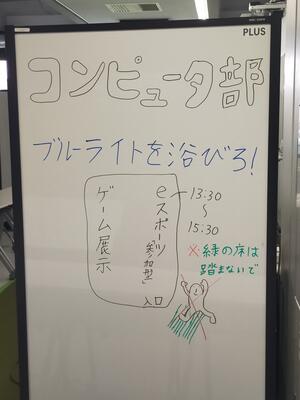 PLUS
コンピュータ部
ブルーライトを浴びろ!
eスポーツ「参加型」
ゲーム展示
入口
13:30
~
15:30
※緑の床は
踏まないで